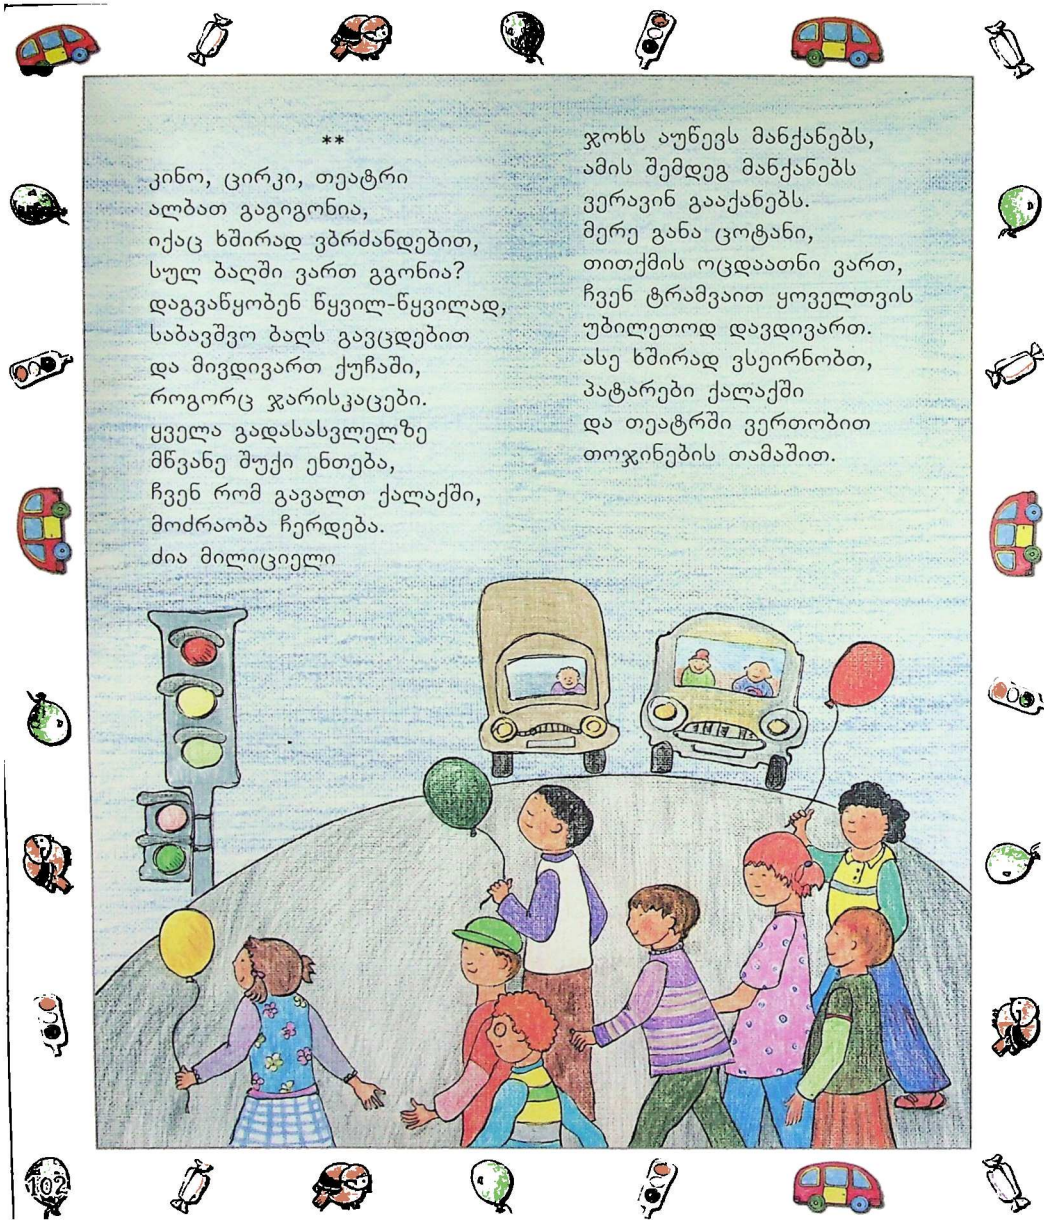 **
კინო, ცირკი, თეატრი
ალბათ გაგიგონია,
იქაც ხშირად ვბრძანდებით,
სულ ბაღში ვართ გგონია?
დაგვაწყობენ წყვილ-წყვილად,
საბავშვო ბაღს გავცდებით
და მივდივართ ქუჩაში,
როგორც ჯარისკაცები.
ყველა გადასასვლელზე
მწვანე შუქი ენთება,
ჩვენ რომ გავალთ ქალაქში,
მოძრაობა ჩერდება.
ძია მილიციელი
ჯოხს აუწევს მანქანებს,
ამის შემდეგ მანქანებს
ვერავინ გააქანებს.
მერე განა ცოტანი,
თითქმის ოცდაათნი ვართ,
ჩვენ ტრამვაით ყოველთვის
უბილეთოდ დავდივართ.
ასე ხშირად ვსეირნობთ,
პატარები ქალაქში
და თეატრში ვერთობით
თოჯინების თამაშით.
102